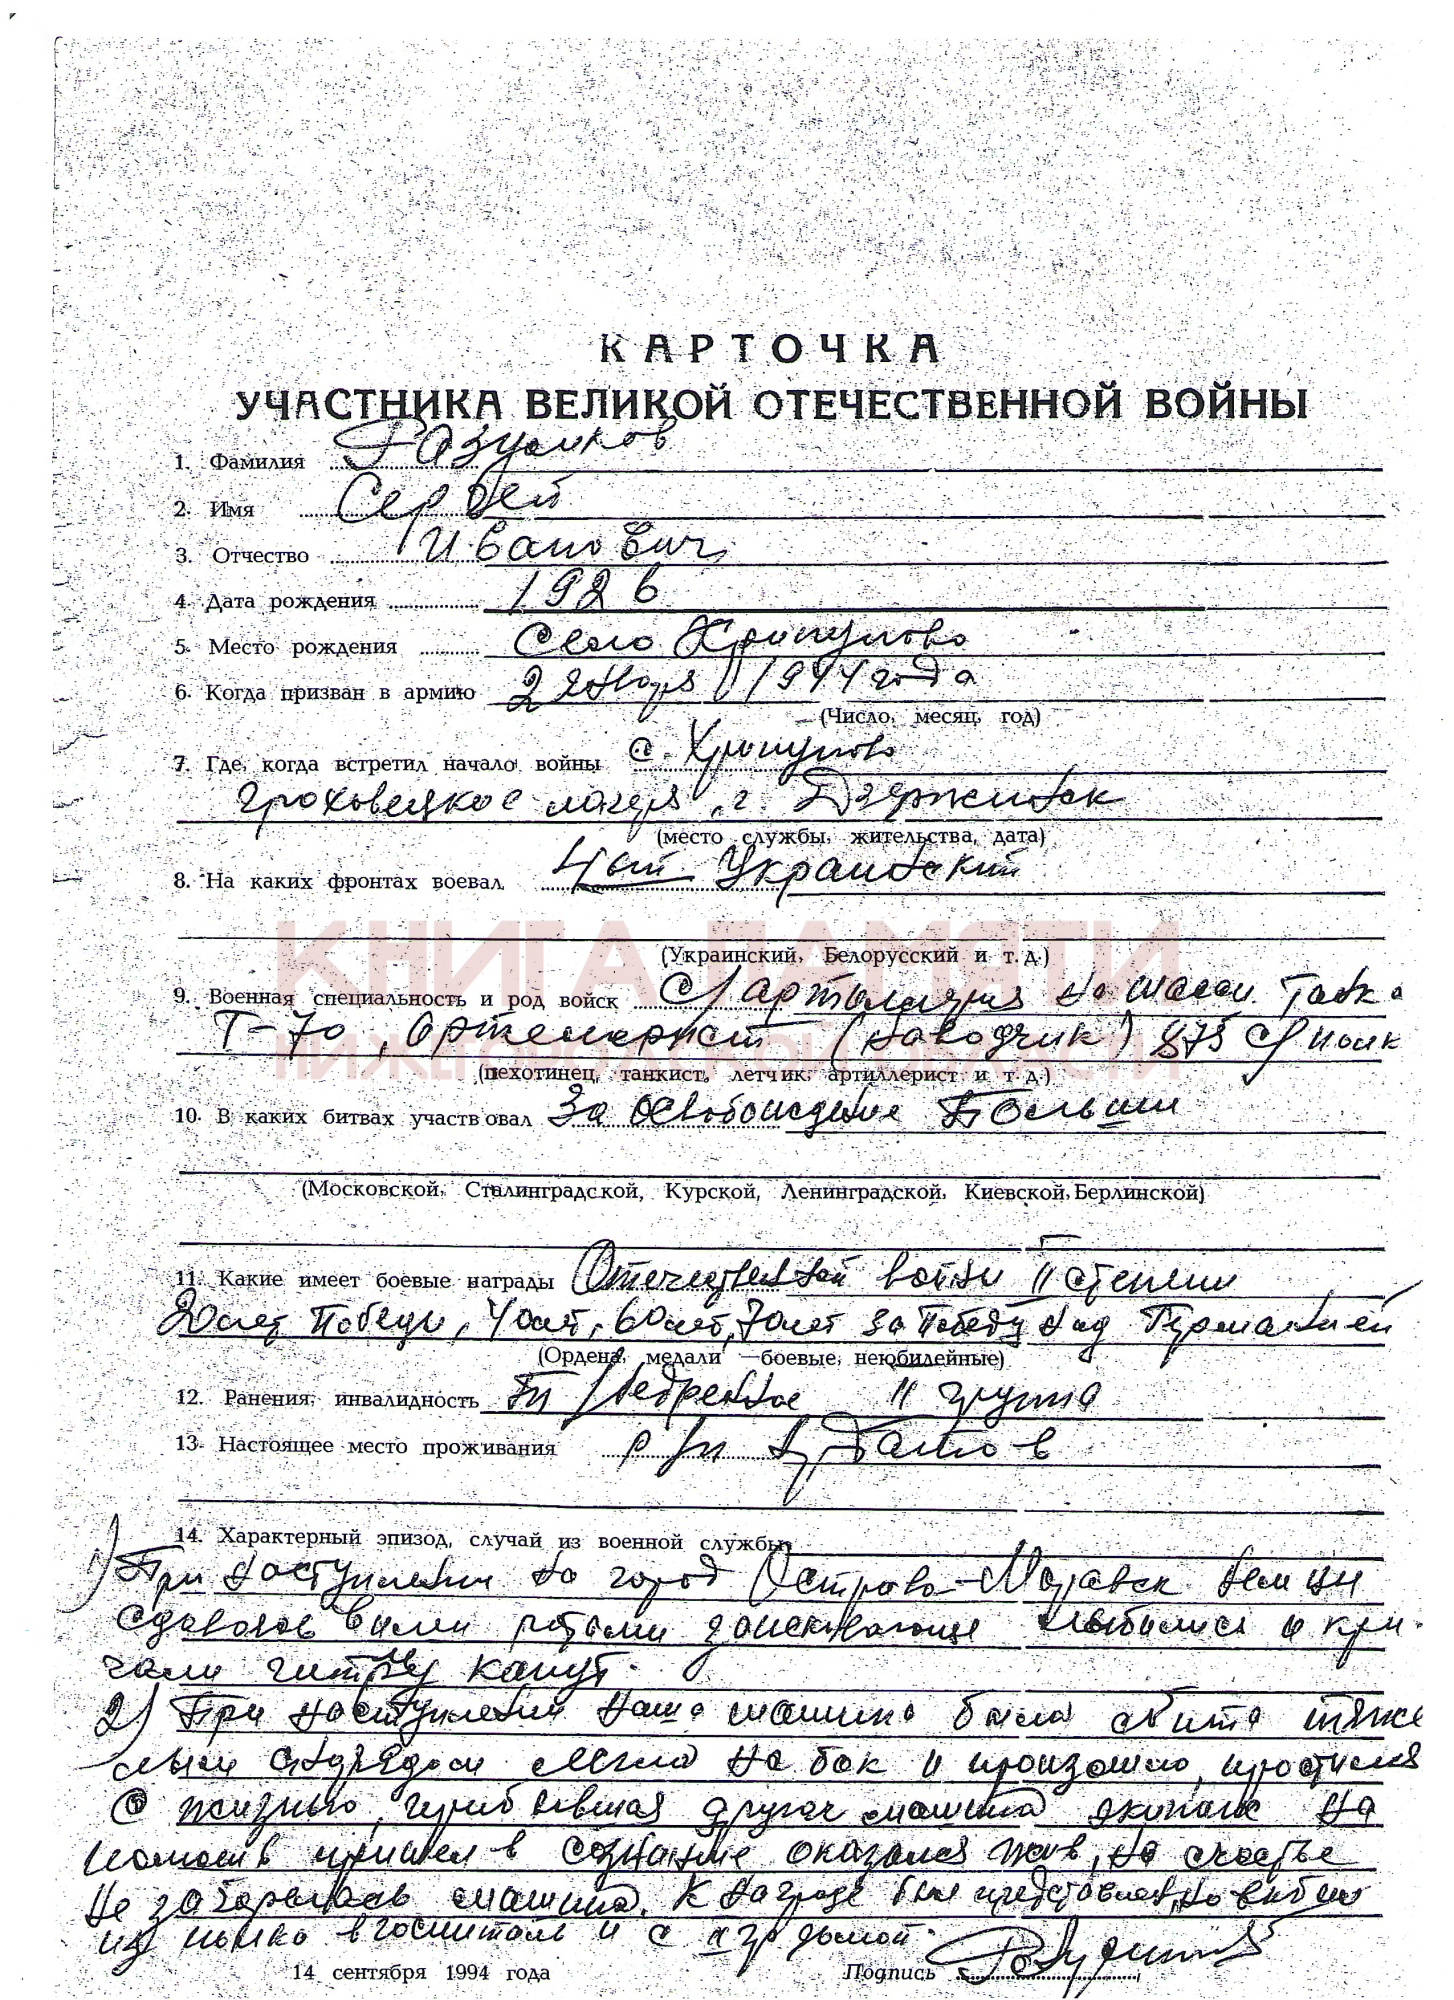 КАРТОЧКА
УЧАСТНИКА ВЕЛИКОЙ ОТЕЧЕСТВЕННОЙ ВОЙНЫ
1. Фамилия Разумков
2. Имя Сергей
3. Отчество Иванович
4. Дата рождения 1926
5. Место рождения Село Хрипуново
6. Когда призван в армию 2 января 1944 года
(Число, месяц, год)
7. Где, когда встретил начало войны с. Хрипуново
лагеря, г. Дзержинск
(место службы, жительства, дата)
8. На каких фронтах воевал 4ый Украинский
КНИГА ПАМЯТИ
(Украинский, Белорусский и т. д.)
9. Военная специальность и род войск С/артилерия на шасси Танка
Т-70, (наводчик) 875 с/полк
НИЖЕГОРОДСКОЙ ОБЛАСТИ
(пехотинец, танкист, летчик, артиллерист и т. д.)
10. В каких битвах участвовал За освобождение Польши
(Московской, Сталинградской, Курской, Ленинградской, Киевской, Берлинской)
11. Какие имеет боевые награды Отечественной войны II степени
20 лет Победы, 40 лет, 60 лет, 70 лет за Победу над Германией
(Ордена, медали — боевые, неюбилейные)
12. Ранения, инвалидность II группа
13. Настоящее место проживания р/п Ардатов
14. Характерный эпизод, случай из военной службы
1) При наступлении на город Острово-Моравск немцы
сдавались ротами и кри-
чали гитлер капут.
2) При наступлении наша машина была сбита тяже
лым снарядом легла на бок и простился
с жизнью, другая машина экипаж на
помощь пришел в сознание оказался жив, на счастье
не загорелась машина. К награде был представлен, но выбыл
из полка в госпиталь и с II гр домой.
14 сентября 1994 года Подпись